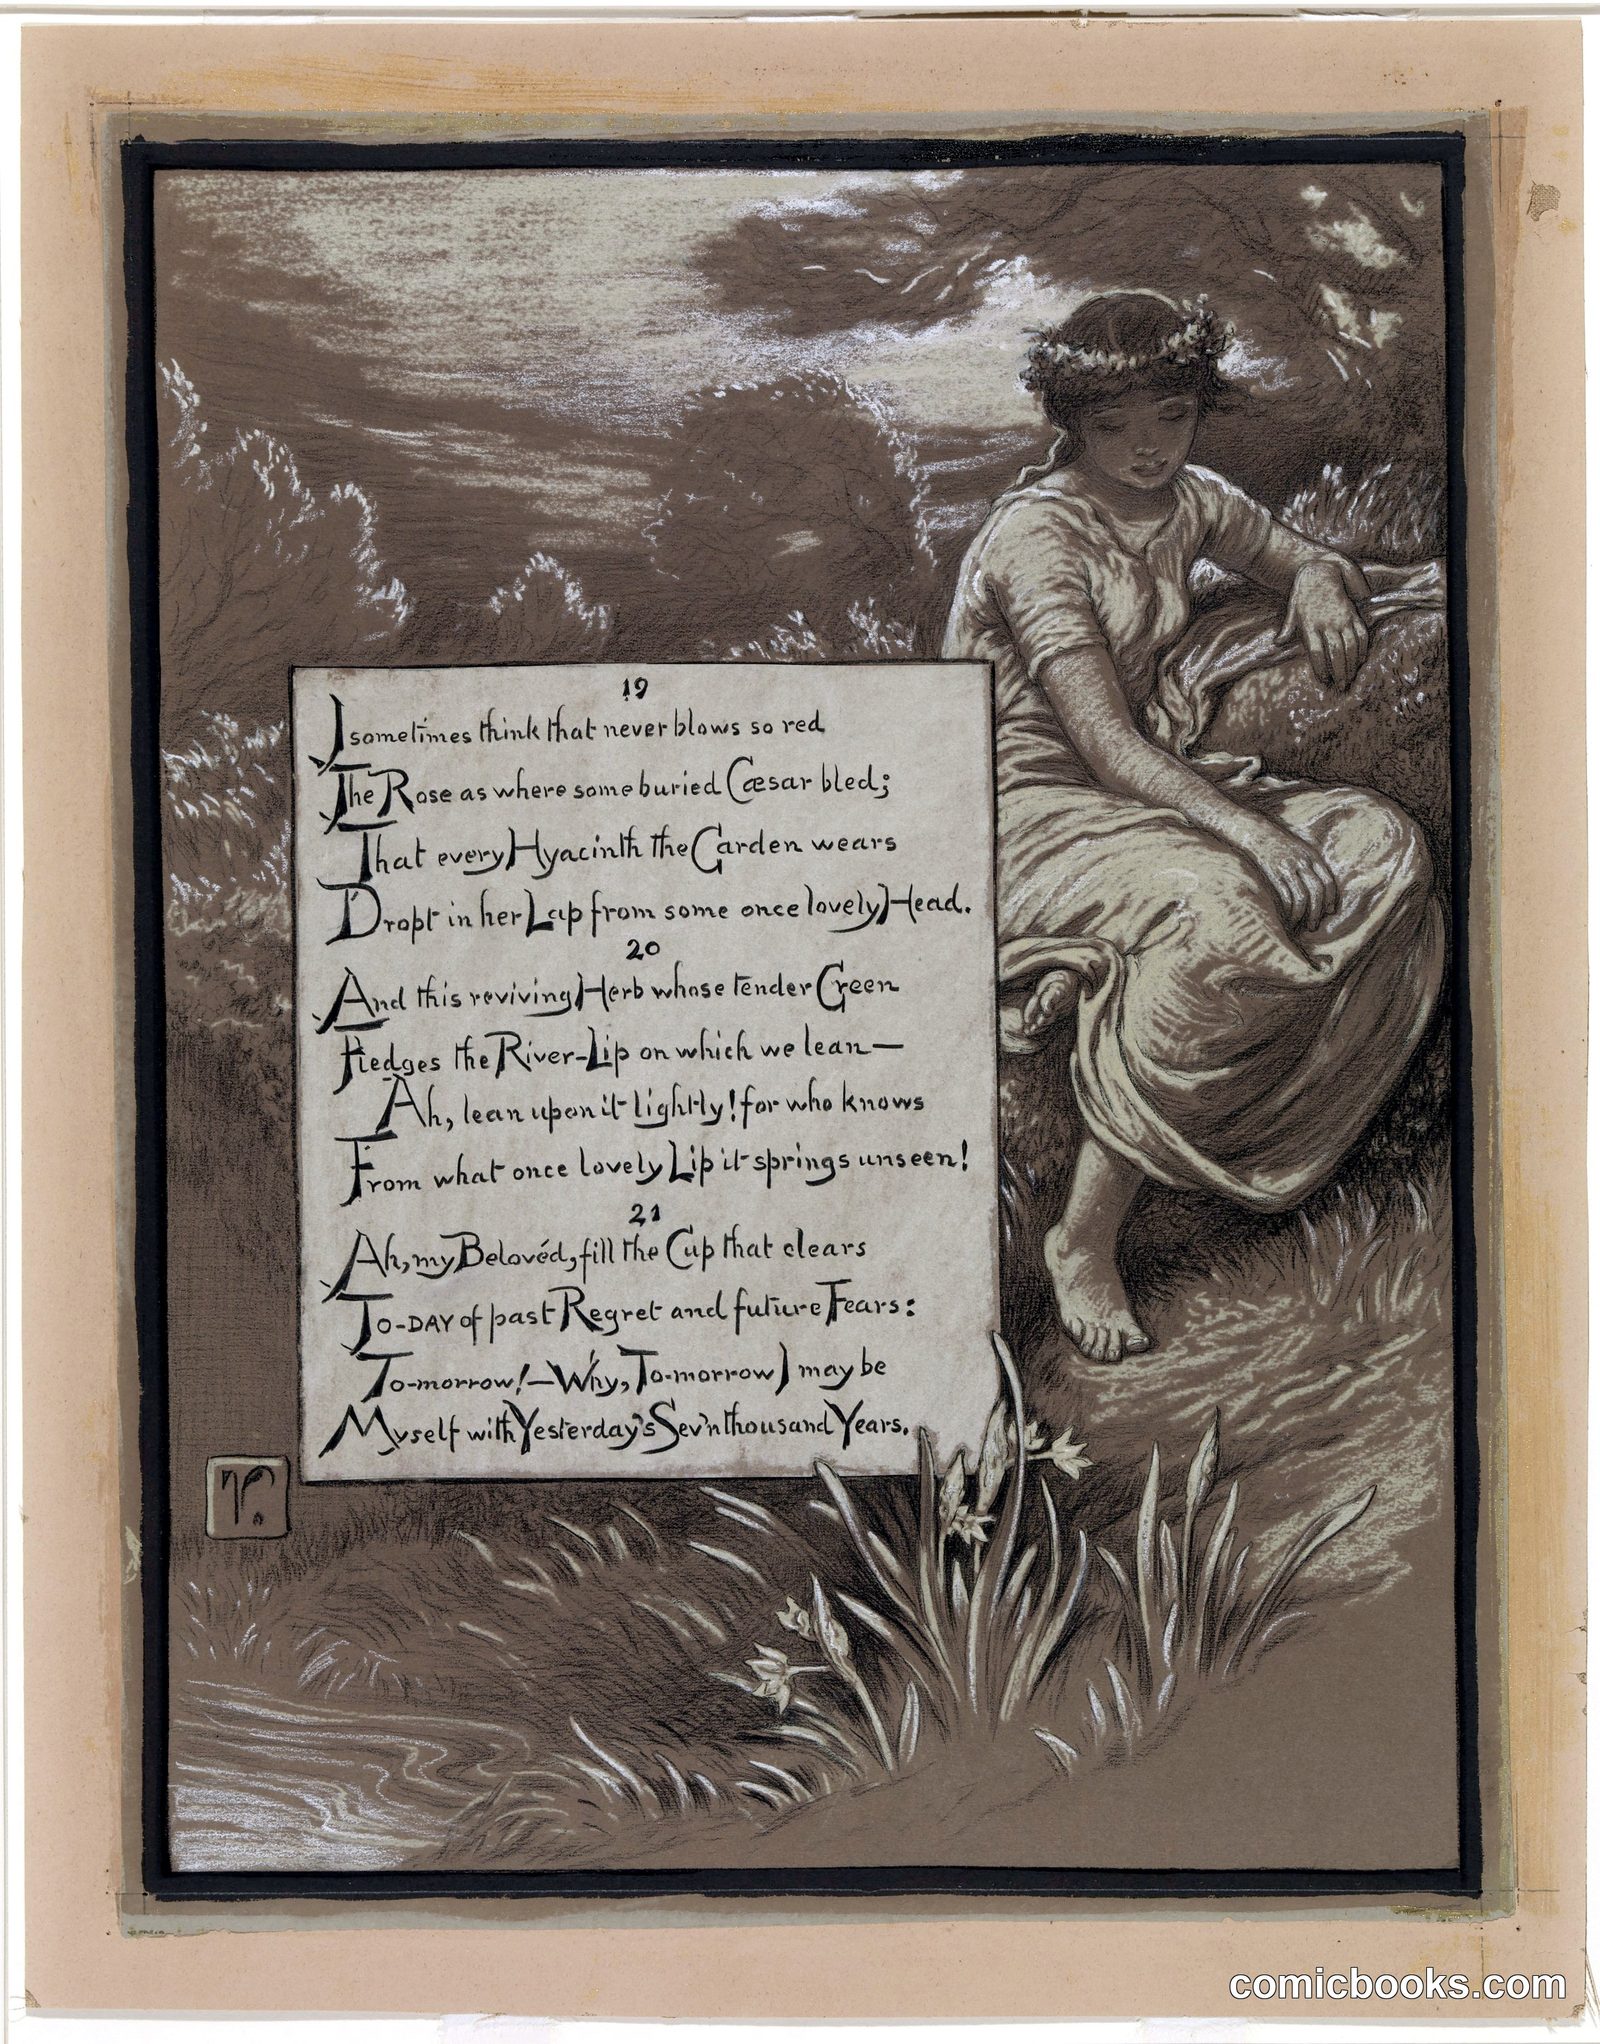 19
I sometimes think that never blows so red
The Rose as where some buried Cæsar bled;
That every Hyacinth the Garden wears
Dropt in her Lap from some once lovely Head.
20
And this reviving Herb whose tender Green
Fledges the River-Lip on which we lean—
Ah, lean upon it lightly! for who knows
From what once lovely Lip it springs unseen!
21
Ah, my Belovéd, fill the Cup that clears
TO-DAY of past Regret and future Fears:
To-morrow!—Why, To-morrow I may be
Myself with Yesterday's Sev'n thousand Years.
V.
comicbooks.com